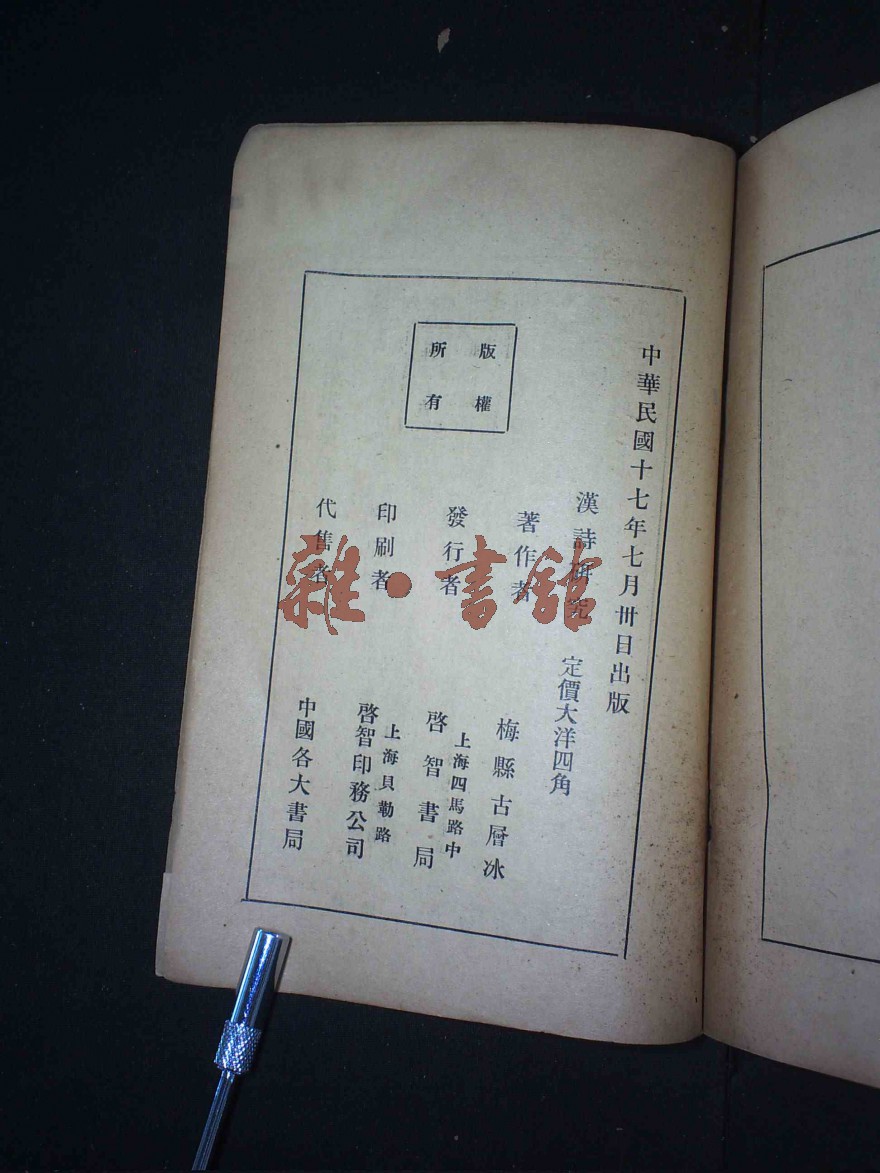 中華民國十七年七月卅日出版
漢詩研究　定價大洋四角
版權
所有
著作者　梅縣古層冰
發行者　上海四馬路中
啓智書局
印刷者　上海貝勒路
啓智印務公司
代售者　中國各大書局
雜·書館